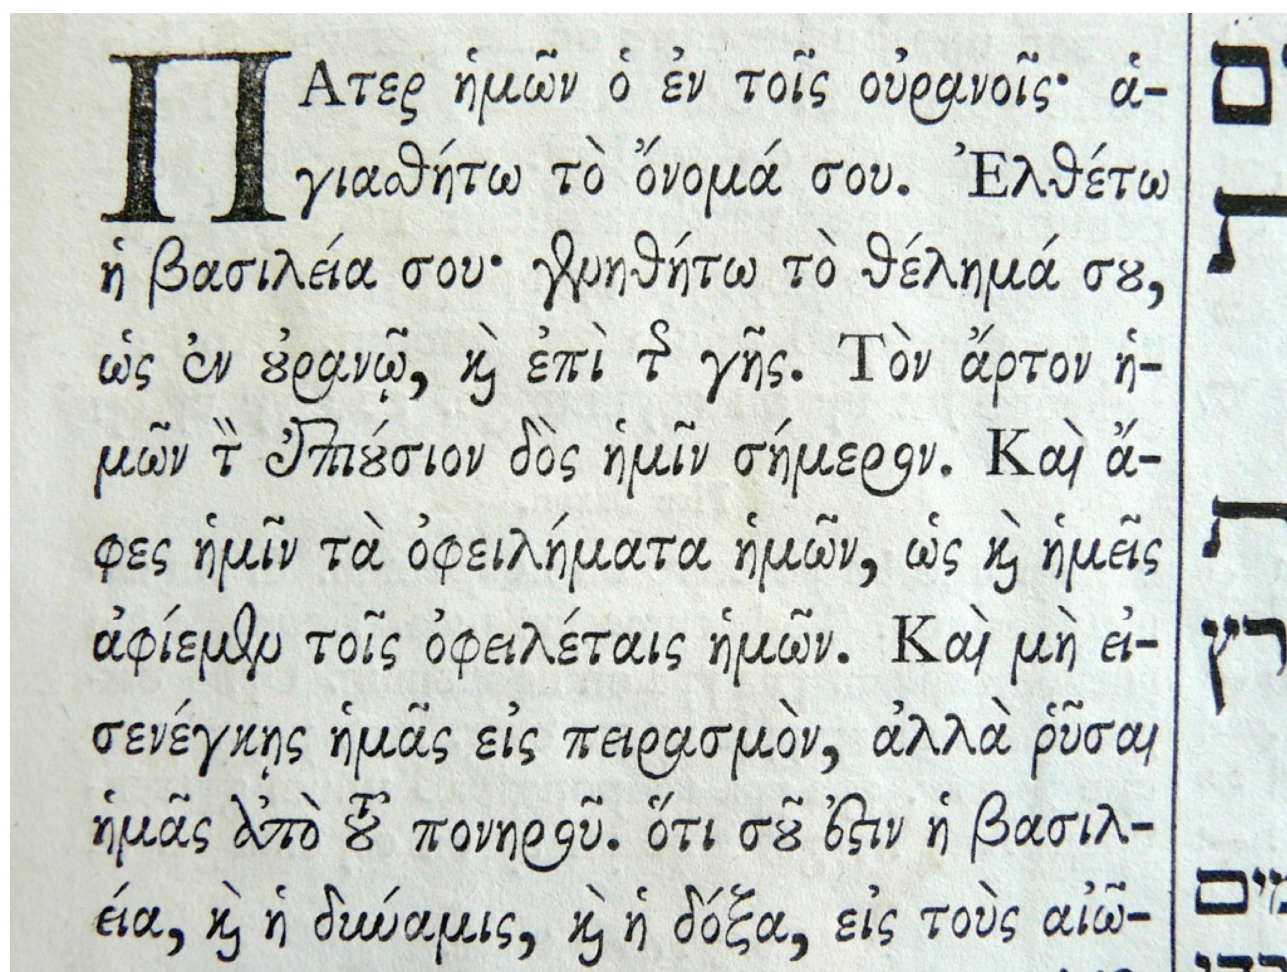 ΠΑτερ ἡμῶν ὁ ἐν τοῖς οὐρανοῖς· ἁ-
γιασθήτω τὸ ὄνομά σου. Ἐλθέτω
ἡ βασιλεία σου· γενηθήτω τὸ θέλημά σȣ,
ὡς ἐν ȣρανῷ, ϗ̀ ἐπὶ τῆς γῆς. Τὸν ἄρτον ἡ-
μῶν τὸν ἐπιȣ́σιον δὸς ἡμῖν σήμερον. Καὶ ἄ-
φες ἡμῖν τὰ ὀφειλήματα ἡμῶν, ὡς ϗ̀ ἡμεῖς
ἀφίεμεν τοῖς ὀφειλέταις ἡμῶν. Καὶ μὴ εἰ-
σενέγκῃς ἡμᾶς εἰς πειρασμὸν, ἀλλὰ ῥῦσαι
ἡμᾶς ἀπὸ τοῦ πονηροῦ. ὅτι σȣ͂ ἐστιν ἡ βασιλ-
εία, ϗ̀ ἡ δύναμις, ϗ̀ ἡ δόξα, εἰς τοὺς αἰῶ-
ים
ת
ת
רץ
מים